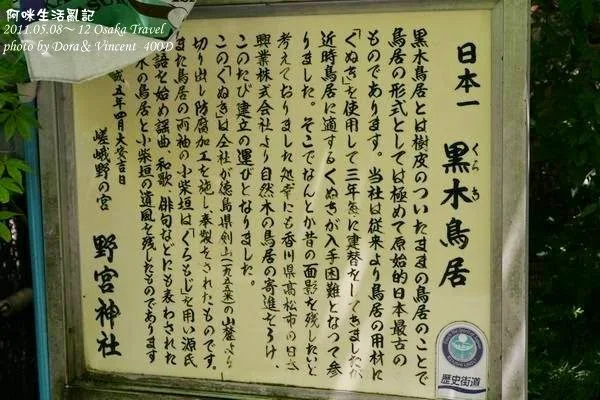 阿咪生活亂記
2011.05.08~ 12 Osaka Travel
photo by Dora & Vincent 400D
日本一 黒木鳥居
くろき
黒木鳥居とは樹皮のついたままの鳥居のことで
鳥居の形式としては極めて原始的日本最古の
ものであります。当社は従来より鳥居の用材に
「くぬぎ」を使用して三年毎に建替をしてきましたが
近時鳥居に適するくぬぎが入手困難となって参
りました。そこでなんとか昔の面影を残したいと
考えておりました処幸にも香川県高松市の日本
興業株式会社より自然木の鳥居の寄進をうけ、
このたび建立の運びとなりました。
この「くぬぎ」は全社が徳島県剣山(一九五五米)の山麓より
切り出し防腐加工を施し、奉製をされたものです。
また鳥居の両袖の小柴垣は「くろもじ」を用い源氏
物語を始め謡曲、和歌、俳句などにも表わされた
黒木の鳥居と小柴垣の遺風を残したものであります
成五年四月大安吉日
嵯峨野の宮 野宮神社
歴史街道